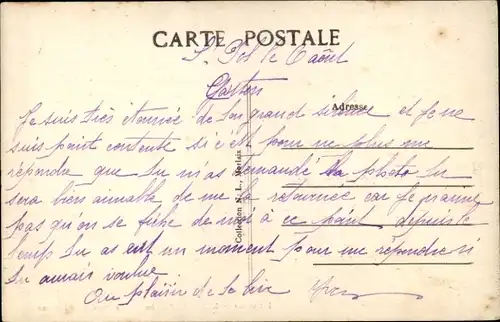 CARTE POSTALE
St Pol le 6 août
Gaston
Adresse
Je suis très étonnée de ton grand silence et je ne
suis point contente si c'est pour ne plus me
répondre que tu m'as demandé ta photo tu
sera bien aimable de me la retournée car je n'aime
pas qu'on se fiche de moi à ce point, depuis le
temp tu as eut un moment pour me répondre si
tu aurais voulue
Au plaisir de te lire
Collection N. L., Morlaix